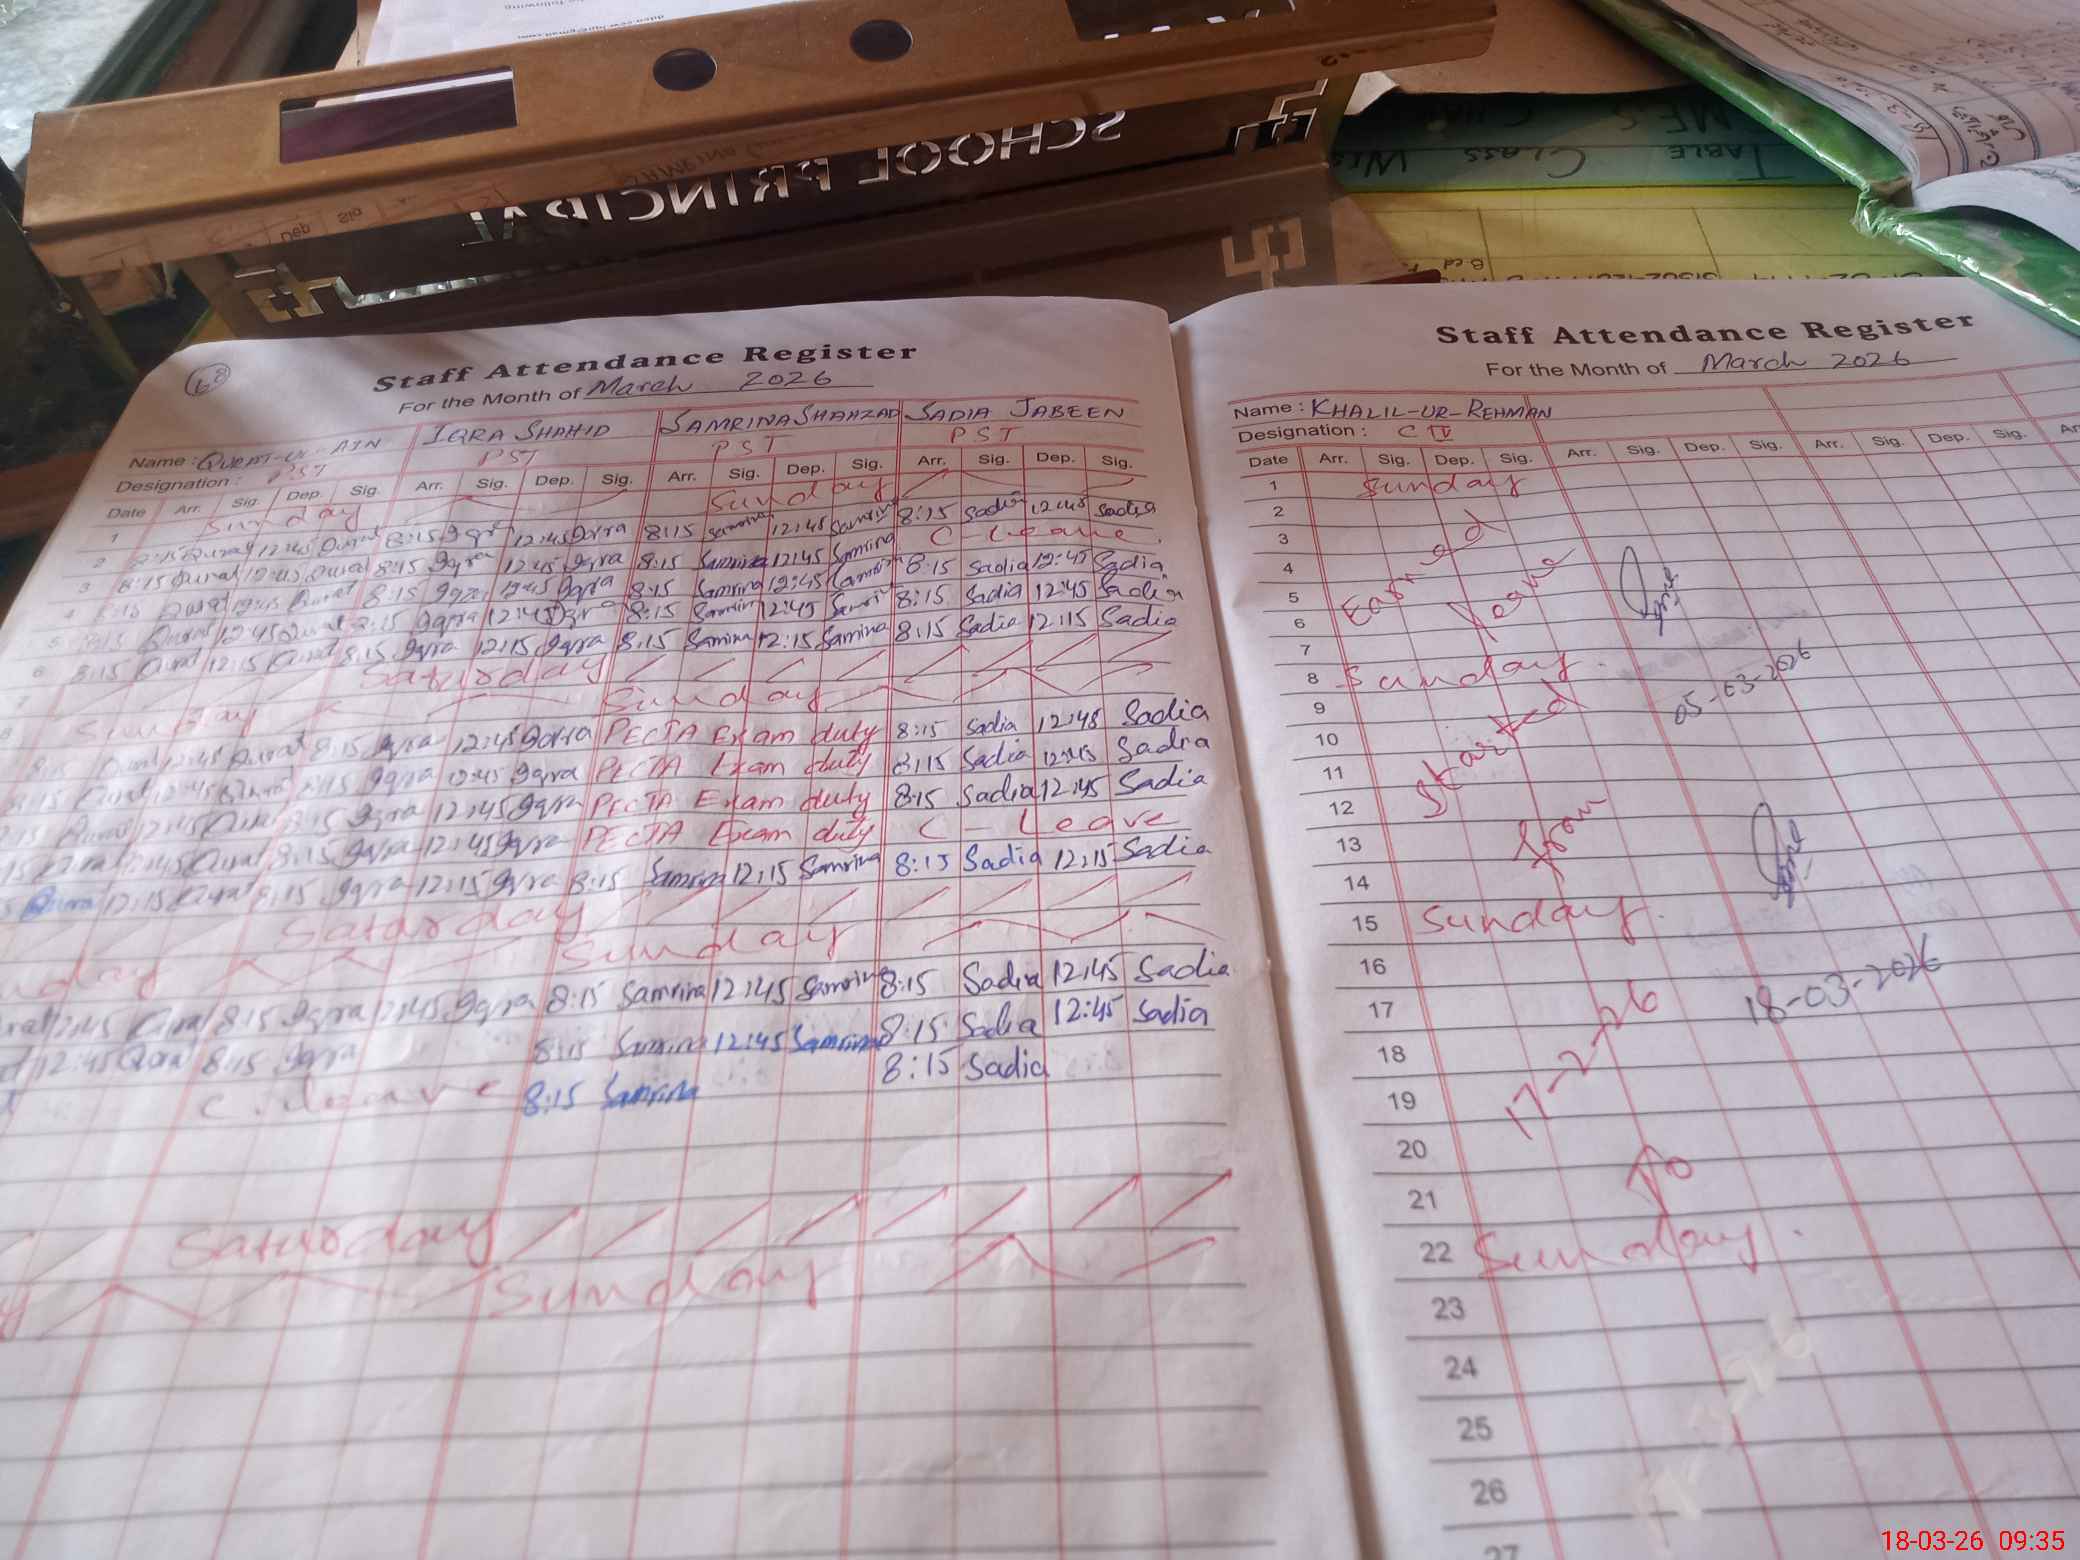 SCHOOL PRINCIPAL
TABLE CLASS
68
Staff Attendance Register
For the Month of March 2026
Name : QURAT-UL-AIN IQRA SHAHID SAMRINA SHAHZAD SADIA JABEEN
Designation : PST PST PST PST
Date Arr. Sig. Dep. Sig. Arr. Sig. Dep. Sig. Arr. Sig. Dep. Sig. Arr. Sig. Dep. Sig.
1 Sunday Sunday
2 8:15 Qurat 12:45 Qurat 8:15 Iqra 12:45 Iqra 8:15 Samrina 12:45 Samrina 8:15 Sadia 12:45 Sadia
3 8:15 Qurat 12:45 Qurat 8:15 Iqra 12:45 Iqra 8:15 Samrina 12:45 Samrina C-Leave.
4 8:15 Qurat 12:45 Qurat 8:15 Iqra 12:45 Iqra 8:15 Samrina 12:45 Samrina 8:15 Sadia 12:45 Sadia
5 8:15 Qurat 12:45 Qurat 8:15 Iqra 12:45 Iqra 8:15 Samrina 12:45 Samrina 8:15 Sadia 12:45 Sadia
6 8:15 Qurat 12:15 Qurat 8:15 Iqra 12:15 Iqra 8:15 Samrina 12:15 Samrina 8:15 Sadia 12:15 Sadia
7 Saturday
8 Sunday Sunday
8:15 Qurat 12:45 Qurat 8:15 Iqra 12:45 Iqra PECTA Exam duty 8:15 Sadia 12:45 Sadia
8:15 Qurat 12:45 Qurat 8:15 Iqra 12:45 Iqra PECTA Exam duty 8:15 Sadia 12:45 Sadia
Qurat 12:45 Qurat 8:15 Iqra 12:45 Iqra PECTA Exam duty 8:15 Sadia 12:45 Sadia
Qurat 12:45 Qurat 8:15 Iqra 12:45 Iqra PECTA Exam duty C-Leave
Qurat 12:15 Qurat 8:15 Iqra 12:15 Iqra 8:15 Samrina 12:15 Samrina 8:15 Sadia 12:15 Sadia
Saturday
Sunday
12:45 Qurat 8:15 Iqra 12:45 Iqra 8:15 Samrina 12:45 Samrina 8:15 Sadia 12:45 Sadia
12:45 Qurat 8:15 Iqra 8:15 Samrina 12:45 Samrina 8:15 Sadia 12:45 Sadia
C.Leave 8:15 Samrina 8:15 Sadia
Saturday
Sunday
Staff Attendance Register
For the Month of March 2026
Name : KHALIL-UR-REHMAN
Designation : C IV
Date Arr. Sig. Dep. Sig. Arr. Sig. Dep. Sig. Arr. Sig. Dep. Sig.
1 Sunday
2
3
4
5
6
7
Earned
Leave
8 Sunday.
05-03-2026
9
10
11
12
13
14
Started
from
15 Sunday.
16
17
18
19
20
21
17-2-26
18-03-2026
To
22 Sunday.
23
24
25
26
27
18-03-26 09:35